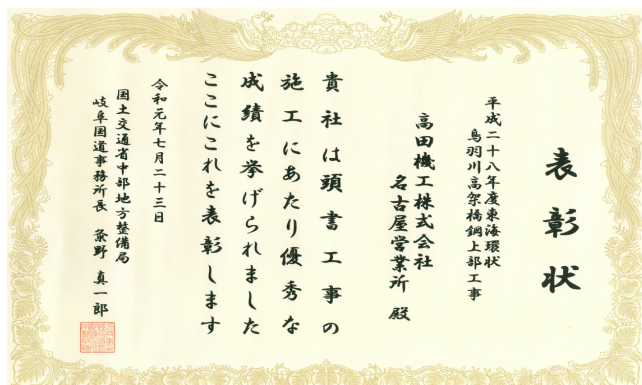 表彰状
平成二十八年度東海環状
鳥羽川高架橋鋼上部工事
高田機工株式会社
名古屋営業所 殿
貴社は頭書工事の
施工にあたり優秀な
成績を挙げられました
ここにこれを表彰します
令和元年七月二十三日
国土交通省中部地方整備局
岐阜国道事務所長 粂野 真一郎